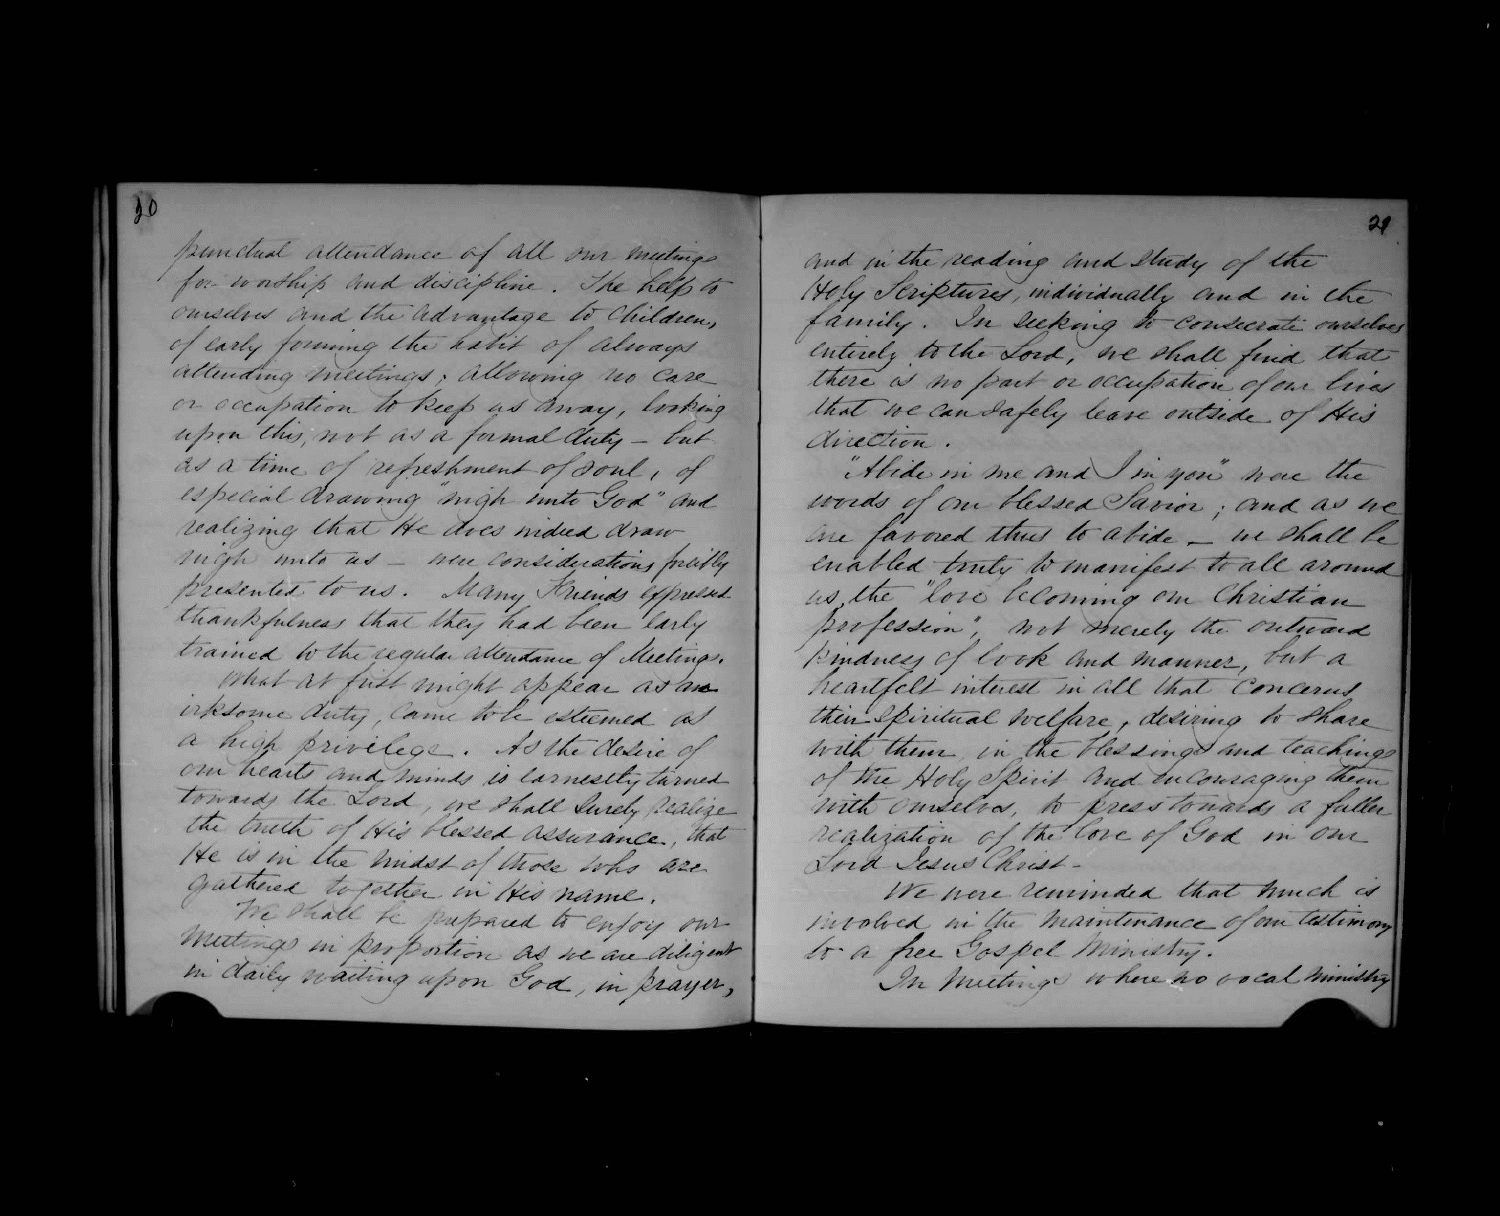 20
punctual attendance of all our meetings
for worship and discipline. The help to
ourselves and the advantage to children,
of early forming the habit of always
attending meetings; allowing no care
or occupation to keep us away, looking
upon this, not as a formal duty – but
as a time of refreshment of soul, of
especial drawing "nigh unto God" and
realizing that He does indeed draw
nigh unto us – were considerations freshly
presented to us. Many Friends expressed
thankfulness that they had been early
trained to the regular attendance of Meetings.
What at first might appear as an
irksome duty, came to be esteemed as
a high privilege. As the desire of
our hearts and minds is earnestly turned
towards the Lord, we shall surely realize
the truth of His blessed assurance, that
He is in the midst of those who are
gathered together in His name.
We shall be prepared to enjoy our
meetings in proportion as we are diligent
in daily waiting upon God, in prayer,
21
and in the reading and study of the
Holy Scriptures, individually and in the
family. In seeking to consecrate ourselves
entirely to the Lord, we shall find that
there is no part or occupation of our lives
that we can safely leave outside of His
direction.
"Abide in me and I in you" were the
words of our blessed Savior; and as we
are favored thus to abide – we shall be
enabled truly to manifest to all around
us, the "love becoming our Christian
profession", not merely the outward
kindness of look and manner, but a
heartfelt interest in all that concerns
their spiritual welfare, desiring to share
with them in the blessings and teachings
of the Holy Spirit and encouraging them
with ourselves, to press towards a fuller
realization of the love of God in our
Lord Jesus Christ –
We were reminded that much is
involved in the maintenance of our testimony
to a free Gospel Ministry.
In Meetings where no vocal ministry